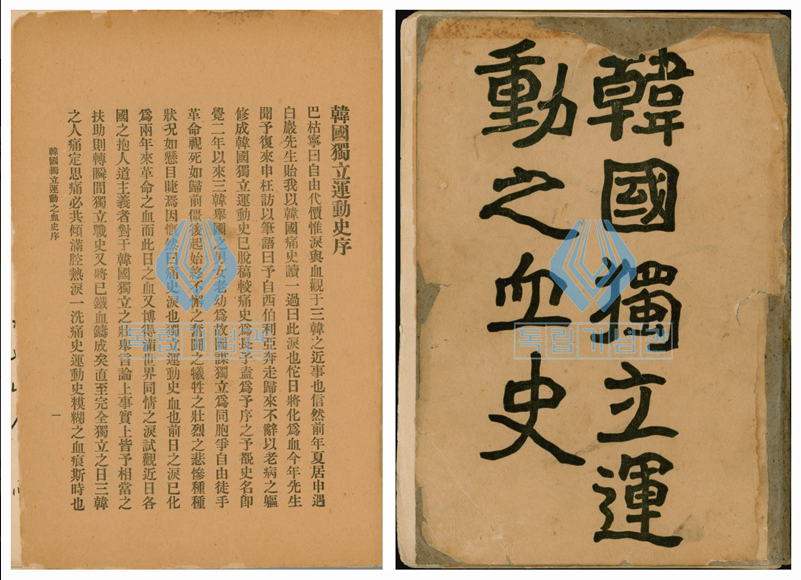 韓國獨立運動史序
巴枯寧曰自由代價惟淚與血觀于三韓之近事也信然前年夏居申遇
白巖先生貽我以韓國痛史讀一過曰此淚也佗日將化爲血今年先生
聞予復來申枉訪以筆語曰予自西伯利亞奔走歸來不辭以老病之軀
修成韓國獨立運動史已脫稿較痛史爲母子盍爲予序之予觀史名卽
覺二年以來三韓舉國之男女老幼爲故國謀獨立爲同胞爭自由徒手
革命視死如歸前僵後起始終不懈之奮鬪之犧牲之壯烈之悲慘種種
狀况如懸目睫焉因慨然曰痛史淚也獨立運動史血也前日之淚已化
爲兩年來革命之血而此日之血又博得滿世界同情之淚試觀近日各
國之抱人道主義者對于韓國獨立之壯舉言論上事實上皆予相當之
扶助則轉瞬間獨立戰史又將已鐵血鑄成矣直至完全獨立之日三韓
之人痛定思痛必共傾滿腔熱淚一洗痛史運動史糢糊之血痕斯時也
韓國獨立運動之血史序
一
독립기념관
韓國獨立運
動之血史
독립기념관